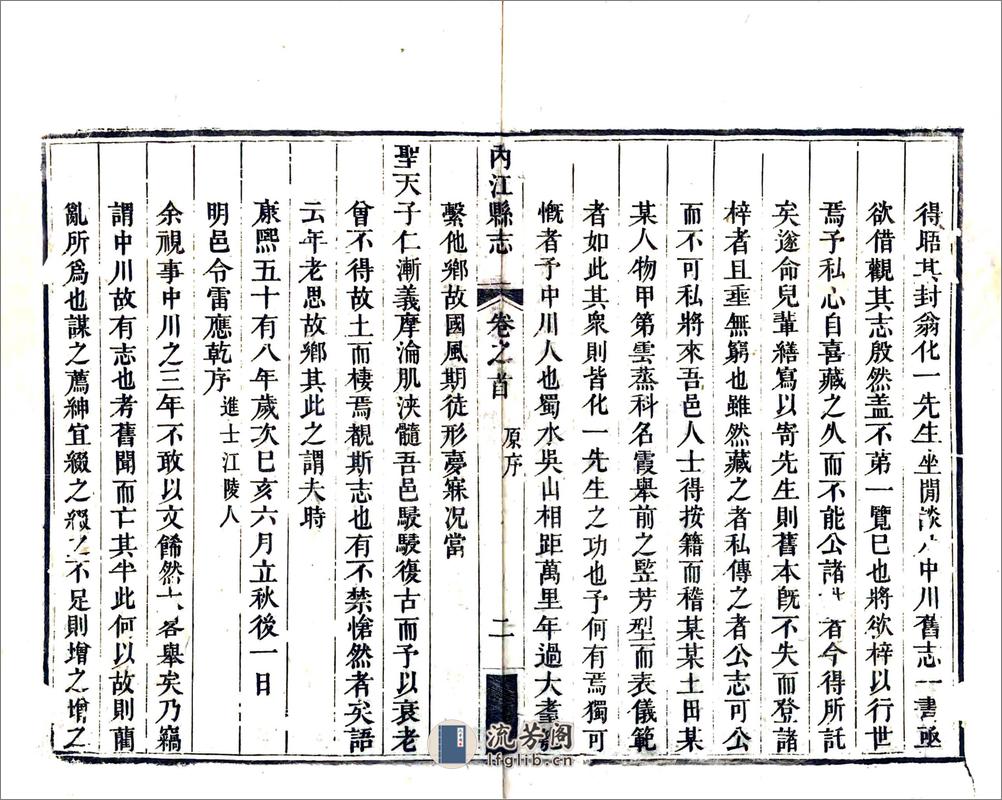 得晤其封翁化一先生坐閒談中川舊志一書亟
欲借觀其志殷然盖不第一覽巳也將欲梓以行世
焉予私心自喜藏之久而不能公諸者今得所託
矣遂命兒輩繕寫以寄先生則舊本旣不失而登諸
梓者且垂無窮也雖然藏之者私傳之者公志可公
而不可私將來吾邑人士得按籍而稽某某土田某
某人物甲第雲蒸科名霞舉前之竪芳型而表儀範
者如此其衆則皆化一先生之功也予何有焉獨可
慨者予中川人也蜀水吳山相距萬里年過大耋
內江縣志
卷之首
原序
二
繫他鄉故國風期徒形夢寐况當
聖天子仁漸義摩淪肌浹髓吾邑駸駸復古而予以衰老
曾不得故土而棲焉覩斯志也有不禁愴然者矣語
云年老思故鄉其此之謂夫時
康熙五十有八年歲次巳亥六月立秋後一日
明邑令雷應乾序
進士江陵人
余視事中川之三年不敢以文餙然畧舉矣乃竊
謂中川故有志也考舊聞而亡其半此何以故則藺
亂所爲也謀之薦紳宜綴之綴之不足則增之增之
流芳阁
lfglib.cn